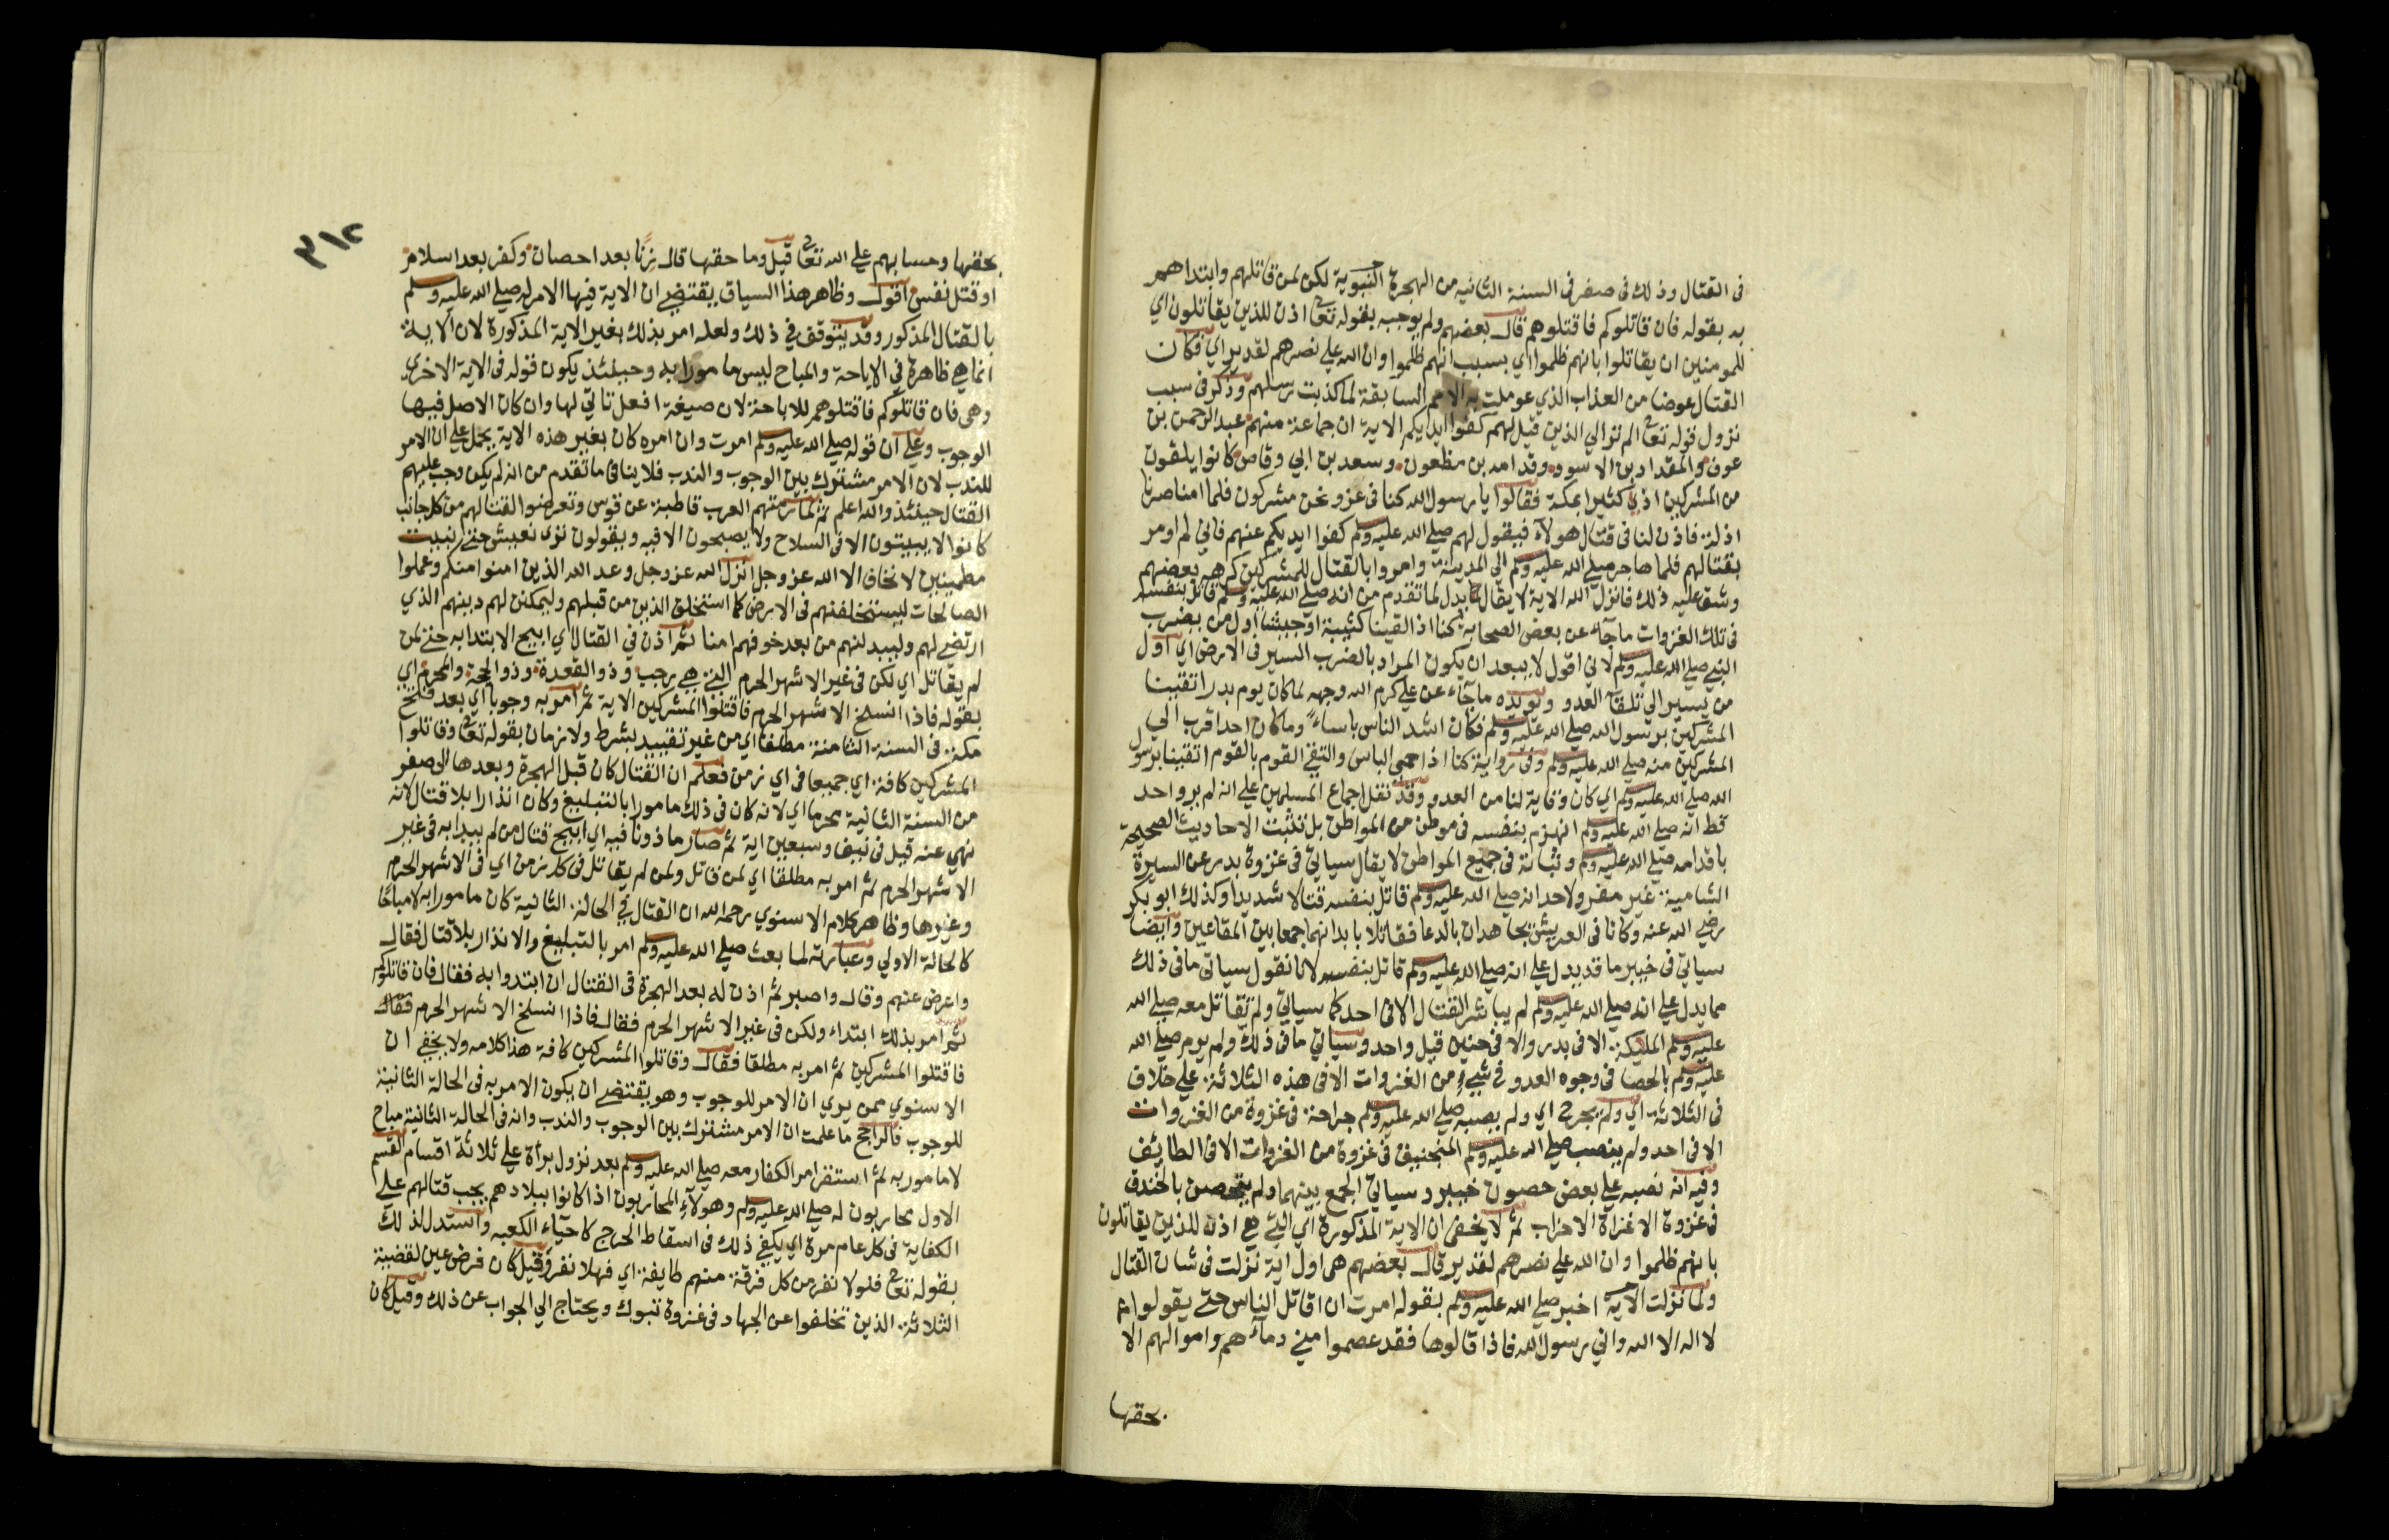 في القتال وذلك في صفر في السنة الثانيه من الهجرة النبوية لكن لمن قاتلهم وابتداهم
به بقوله فان قاتلوكم فاقتلوهم قال بعضهم ولم يوجبه بقوله تعا اذن للذين يقاتلون اي
للمومنين ان يقاتلوا بانهم ظلموا اي بسبب انهم ظلموا وان الله علي نصرهم لقدير اي فكان
القتال عوضا من العذاب الذي عوملت به الامم السابقة لما كذبت رسلهم وذكر في سبب
نزول قوله تعا الم تر الي الذين قيل لهم كفوا ايديكم الاية ان جماعة منهم عبد الرحمن بن
عوف والمقداد بن الاسود وقدامه بن مظعون وسعد بن ابي وقاص كانوا يلقون
من المشركين اذي كثيرا بمكة فقالوا يا رسول الله كنا في عز ونحن مشركون فلما امنا صرنا
اذلة فاذن لنا في قتال هولاء فيقول لهم صلي الله عليه وسلم كفوا ايديكم عنهم فاني لم اومر
بقتالهم فلما هاجر صلي الله عليه وسلم الي المدينة وامروا بالقتال للمشركين كرهه بعضهم
وشق عليه ذلك فانزل الله الاية لا يقال يدل لما تقدم من انه صلي الله عليه وسلم قاتل بنفسه
في تلك الغزوات ما جآء عن بعض الصحابة كنا اذا لقينا كتيبة او جيشا اول من يضرب
النبي صلي الله عليه وسلم لاني اقول لا يبعد ان يكون المراد بالضرب السير في الارض اي اول
من يسير الي تلقآ العدو ويويده ما جآء عن علي كرم الله وجهه لما كان يوم بدر اتقينا
المشركين برسول الله صلي الله عليه وسلم فكان اشد الناس باساء وما كان احدا قرب الي
المشركين منه صلي الله عليه وسلم وفي رواية كنا اذا حمي الباس والتقي القوم بالقوم اتقينا برسول
الله صلي الله عليه وسلم اي كان وقاية لنا من العدو وقد نقل اجماع المسلمين علي انه لم يرو احد
قط انه صلي الله عليه وسلم انهزم بنفسه في موطن من المواطن بل تثبت الاحاديث الصحيحة
باقدامه صلي الله عليه وسلم وثباته في جميع المواطن لا يقال سياتي في غزوة بدر عن السيرة
الشامية غير معزو لاحد انه صلي الله عليه وسلم قاتل بنفسه قتالا شديدا وكذلك ابو بكر
رضي الله عنه وكانا في العريش يجاهدان بالدعا فقاتلا بابدانهما جمعا بين المقاعين وايضا
سياتي في خيبر ما قد يدل علي انه صلي الله عليه وسلم قاتل بنفسه لانا نقول سياتي ما في ذلك
مما يدل علي انه صلي الله عليه وسلم لم يباشر القتال الا في احد كما سياتي ولم تقاتل معه صلي الله
عليه وسلم المليكة الا في بدر والا في حنين قيل واحد وسياتي ما في ذلك ولم يرم صلي الله
عليه وسلم بالحصا في وجوه العدو في شيء من الغزوات الا في هذه الثلاثة علي خلاف
في الثلاثة اي ولم يجرح اي ولم يصبه صلي الله عليه وسلم جراحة في غزوة من الغزوات
الا في احد ولم ينصب صلي الله عليه وسلم المنجنيق في غزوة من الغزوات الا في الطايف
وفيه انه نصبه علي بعض حصون خيبر وسياتي الجمع بينهما ولم يتحصن بالخندق
في غزوة الا غزاة الاحزاب ثم لا يخفي ان الاية المذكورة اي التي هي اذن للذين يقاتلون
بانهم ظلموا وان الله علي نصرهم لقدير قال بعضهم هي اول اية نزلت في شان القتال
ولما نزلت الاية اخبر صلي الله عليه وسلم بقوله امرت ان اقاتل الناس حتي يقولوا
لا اله الا الله واني رسول الله فاذا قالوها فقد عصموا مني دمآءهم واموالهم الا
بحقها
٣١٢
بحقها وحسابهم علي الله تعا قيل وما حقها قال زنا بعد احصان وكفر بعد اسلام
او قتل نفس اقول وظاهر هذا السياق يقتضي ان الاية فيها الامر له صلي الله عليه وسلم
بالقتال المذكور وقد يتوقف في ذلك ولعله امر بذلك بغير الاية المذكورة لان الاية
انما هي ظاهرة في الاباحة والمباح ليس مامورا به وحينئذ يكون قوله في الاية الاخري
وهي فان قاتلوكم فاقتلوهم للاباحة لان صيغة افعل تاتي لها وان كان الاصل فيها
الوجوب وعلي ان قوله صلي الله عليه وسلم امرت وان امره كان بغير هذه الاية يحمل علي ان الامر
للندب لان الامر مشترك بين الوجوب والندب فلا ينافي ما تقدم من انه لم يكن وجب عليهم
القتال حينئذ والله اعلم ثم لما رمتهم العرب قاطبة عن قوس وتعرضوا لقتالهم من كل جانب
كانوا لا يبيتون الا في السلاح ولا يصبحون الا فيه ويقولون نري نعيش حتي نبيت
مطمينين لا نخاف الا الله عز وجل انزل الله عز وجل وعد الله الذين امنوا منكم وعملوا
الصالحات ليستخلفنهم في الارض كما استخلف الذين من قبلهم وليمكنن لهم دينهم الذي
ارتضي لهم وليبدلنهم من بعد خوفهم امنا ثم اذن في القتال اي ابيح الابتدا به حتي لمن
لم يقاتل اي لكن في غير الاشهر الحرم التي هي رجب وذو القعدة وذو الحجة والمحرم اي
بقوله فاذا انسلخ الاشهر الحرم فاقتلوا المشركين الاية ثم امر به وجوبا اي بعد فتح
مكة في السنة الثامنة مطلقا اي من غير تقييد بشرط ولا زمان بقوله تعا وقاتلوا
المشركين كافة اي جميعا في اي زمن فعلم ان القتال كان قبل الهجرة وبعدها الي صفر
من السنة الثانية محرما اي لانه كان في ذلك مامورا بالتبليغ وكان انذارا بلا قتال لانه
نهي عنه قيل في نيف وسبعين اية ثم صار ماذونا فيه اي ابيح قتال من لم يبدا به في غير
الاشهر الحرم ثم امر به مطلقا اي لمن قاتل ولمن لم يقاتل في كل زمن اي في الاشهر الحرم
وغيرها وظاهر كلام الاسنوي رحمه الله ان القتال في الحالة الثانية كان مامورا به لا مباحا
كالحالة الاولي وعبارته لما بعث صلي الله عليه وسلم امر بالتبليغ والانذار بلا قتال فقال
واعرض عنهم وقال واصبر ثم اذن له بعد الهجرة في القتال ان ابتدوا به فقال فان قاتلوكم
ثم امر بذلك ابتداء ولكن في غير الاشهر الحرم فقال فاذا انسلخ الاشهر الحرم فقال
فاقتلوا المشركين ثم امر به مطلقا فقال وقاتلوا المشركين كافة هذا كلامه ولا يخفي ان
الاسنوي ممن يري ان الامر للوجوب وهو يقتضي ان يكون الامر به في الحالة الثانية
للوجوب فالراجح ما علمت ان الامر مشترك بين الوجوب والندب وانه في الحالة الثانية مباح
لا مامور به ثم استقر امر الكفار معه صلي الله عليه وسلم بعد نزول برأة علي ثلاثة اقسام القسم
الاول محاربون له صلي الله عليه وسلم وهولآء المحاربون اذا كانوا ببلادهم يجب قتالهم علي
الكفاية في كل عام مرة اي يكفي ذلك في اسقاط الحرج كاحيآء الكعبه واستدل لذلك
بقوله تعا فلولا نفر من كل فرقة منهم طايفة اي فهلا نفر وقيل كان فرض عين لقضية
الثلاثة الذين تخلفوا عن الجهاد في غزوة تبوك ويحتاج الي الجواب عن ذلك وقيل كان